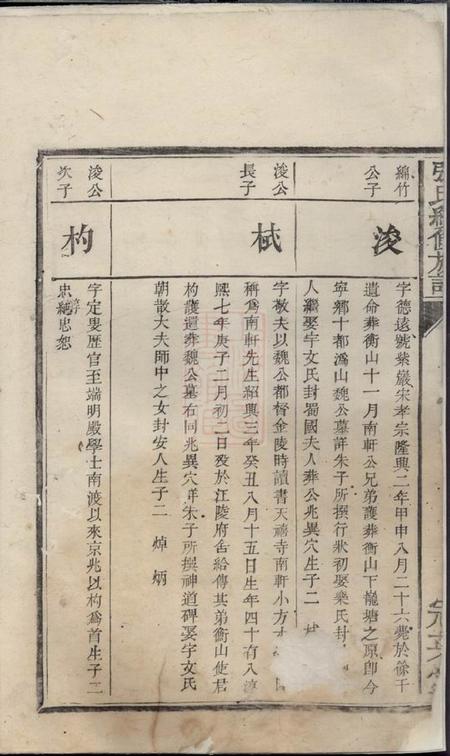 張氏續修族譜
綿竹
公子
浚
字德遠號紫巖宋孝宗隆興二年甲申八月二十六薨於餘干
遺命葬衡山十一月南軒公兄弟護葬衡山下龍塘之原卽今
寧鄉十都溈山魏公墓詳朱子所撰行狀初娶樂氏封
人繼娶宇文氏封蜀國夫人葬公兆異穴生子二
浚公
長子
栻
字敬夫以魏公都督金陵時讀書天禧寺南軒小方
稱爲南軒先生紹興三年癸丑八月十五日生年四十有八淳
熙七年庚子二月初二日歿於江陵府舍給傳其弟衡山使君
枃護還葬魏公墓右同兆異穴詳朱子所撰神道碑娶宇文氏
朝散大夫師中之女封安人生子二 焯 炳
浚公
次子
枃
字定叟歷官至端明殿學士南渡以來京兆以枃爲首生子二
忠純忠恕